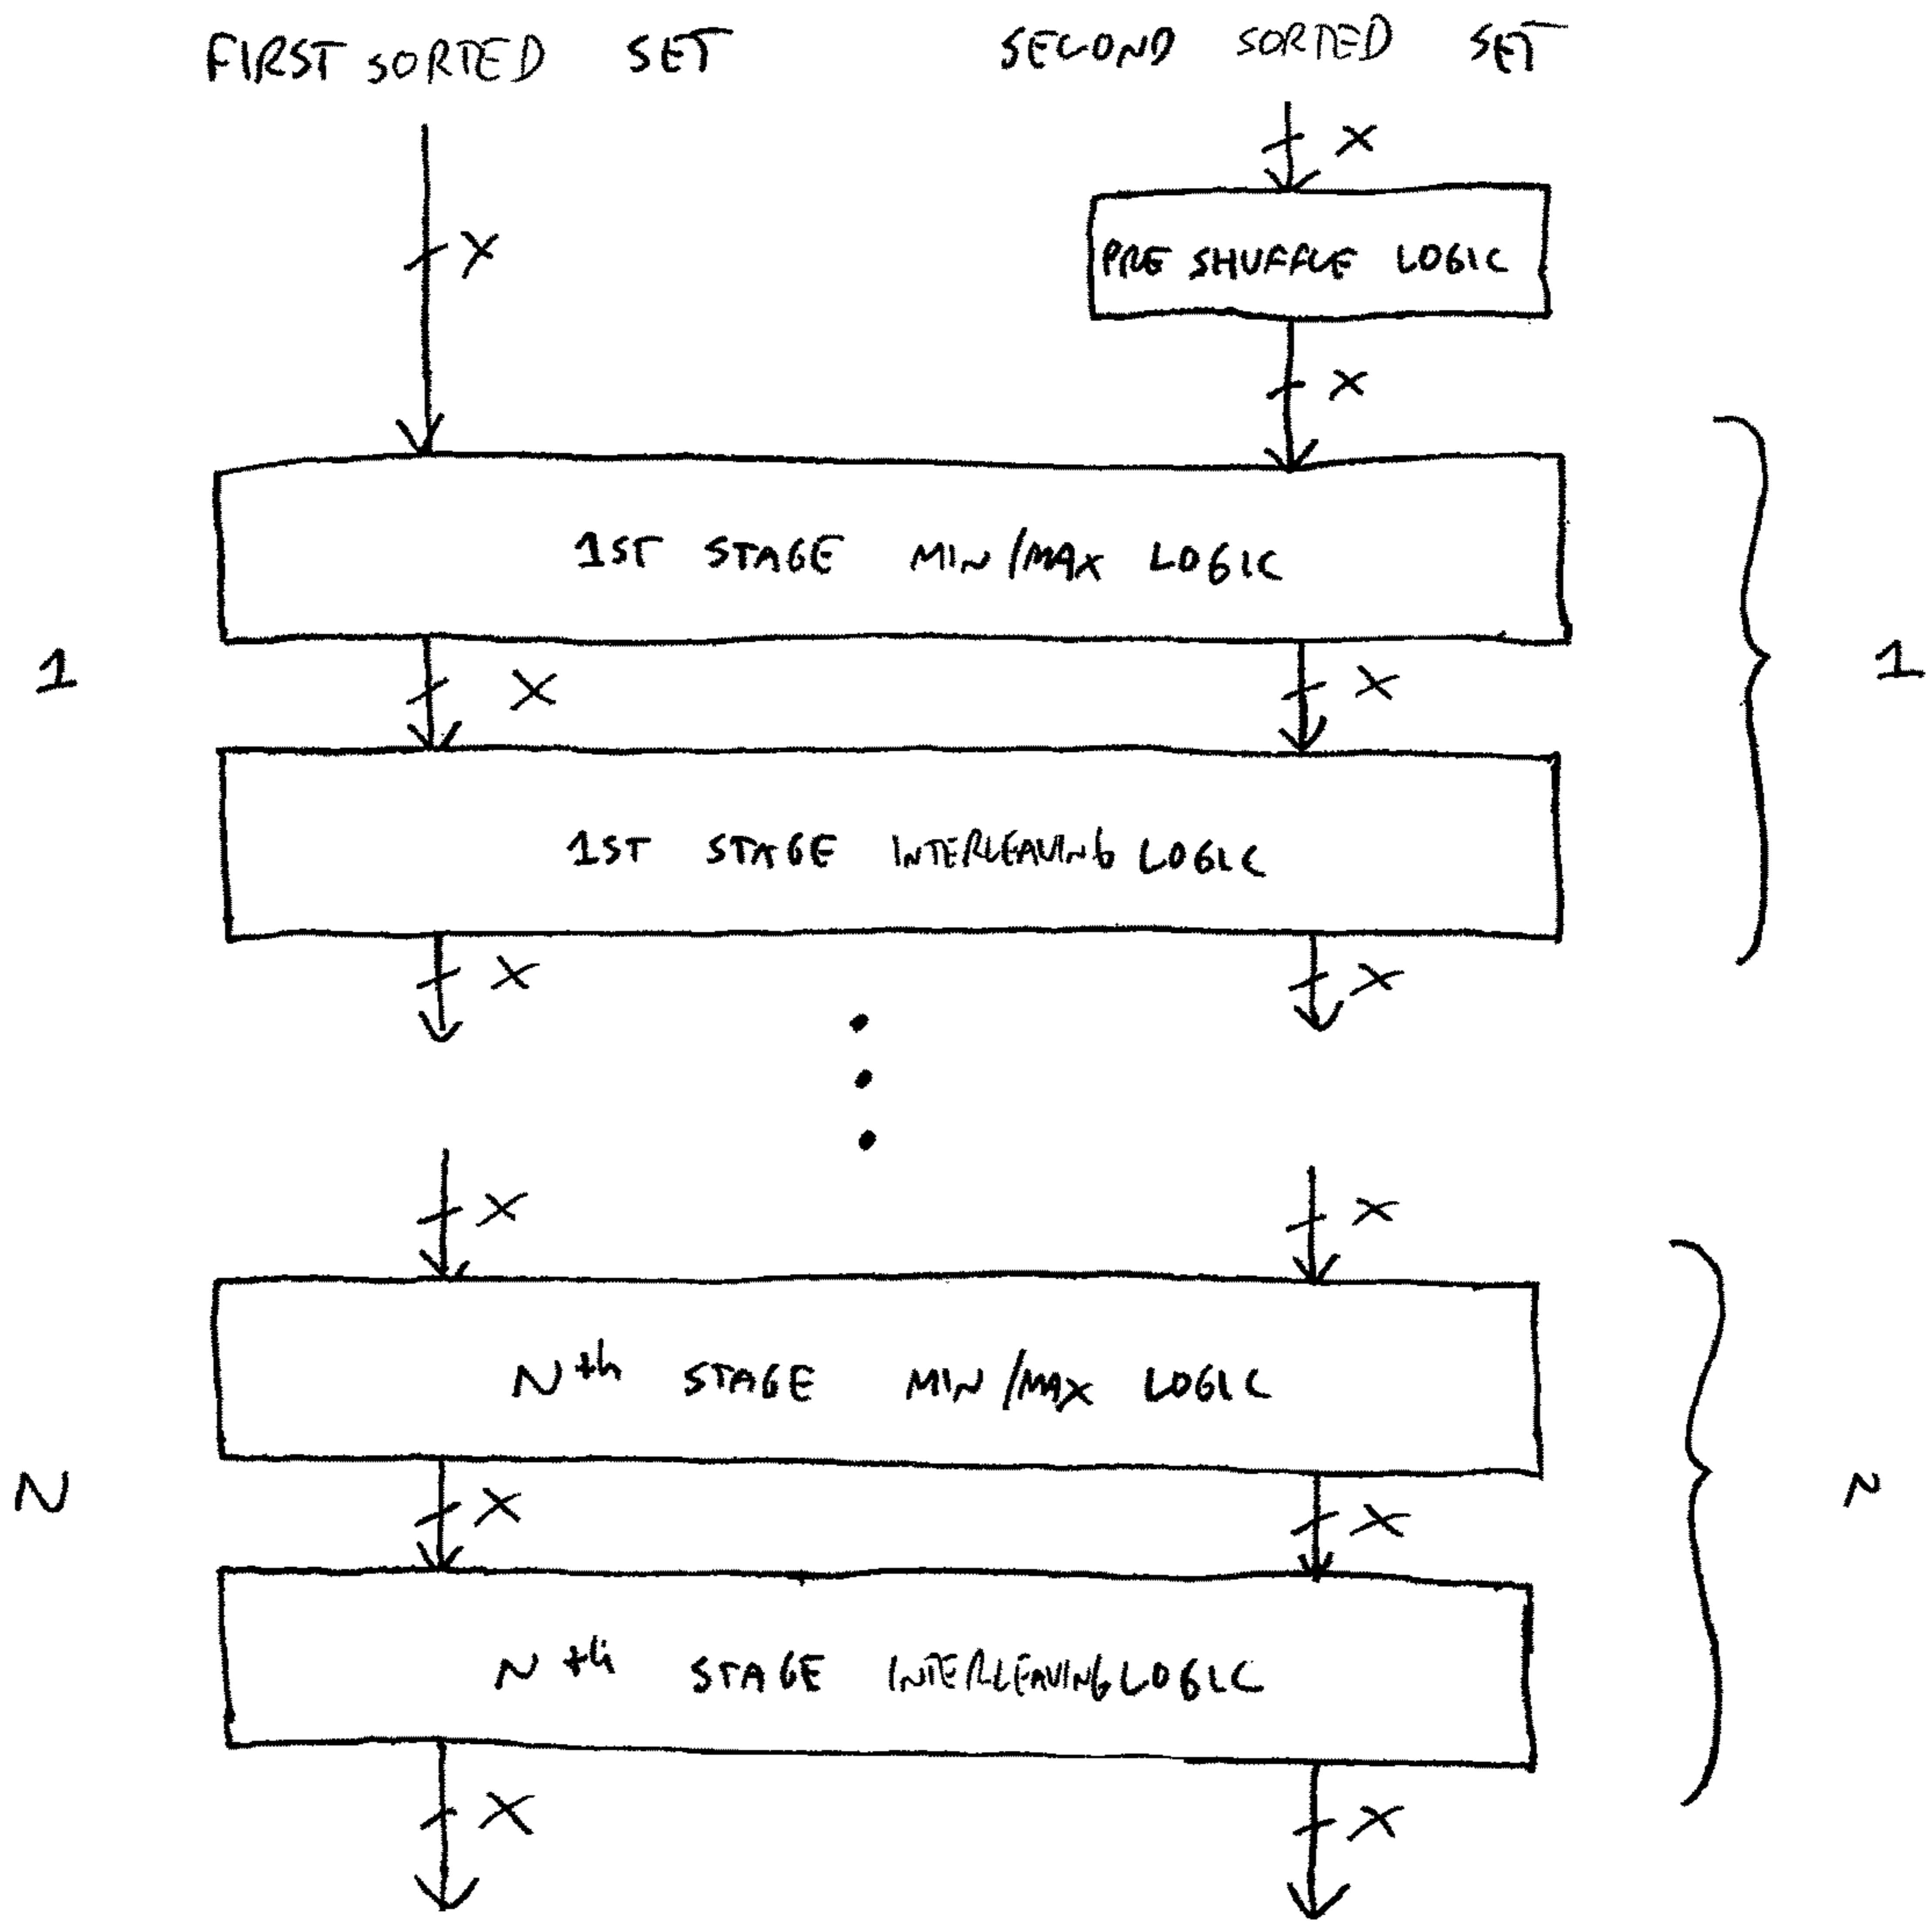 FIRST SORTED SET SECOND SORTED SET
X
X
PRE SHUFFLE LOGIC
X
1ST STAGE MIN/MAX LOGIC
1 X X 1
1ST STAGE INTERLEAVING LOGIC
X X
X X
Nth STAGE MIN/MAX LOGIC
N X X N
Nth STAGE INTERLEAVING LOGIC
X X